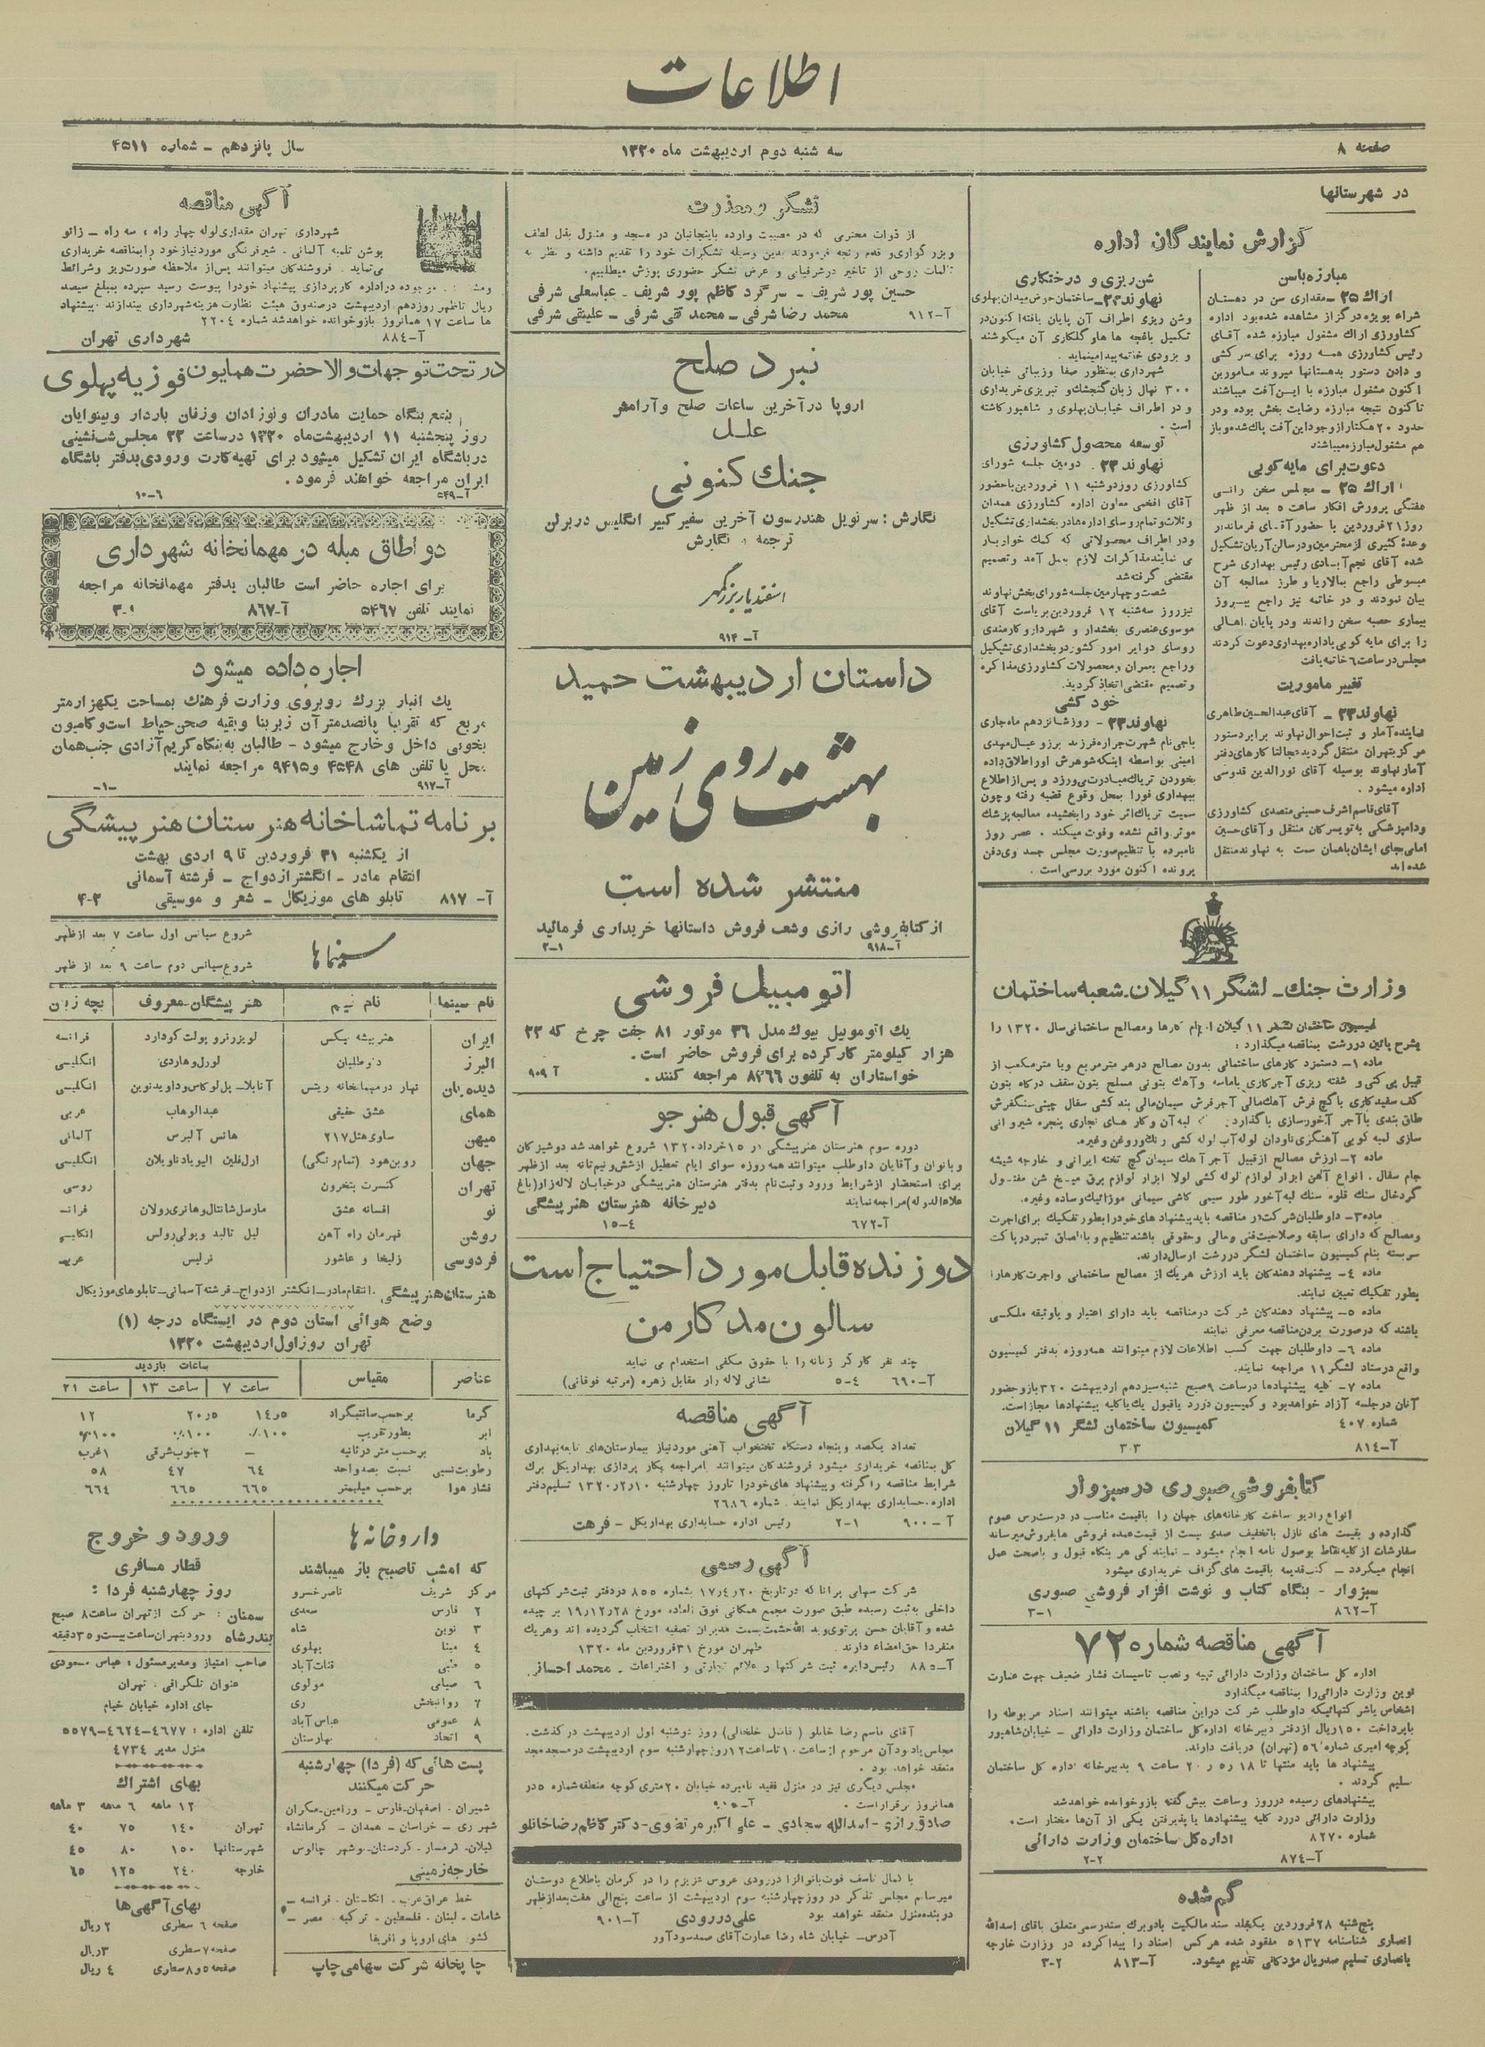 اطلاعات
صفحه ۸
سه شنبه دوم اردیبهشت ماه ۱۳۲۰
سال پانزدهم ـ شماره ۴۵۱۱
در شهرستانها
گزارش نمایندگان اداره
مبارزه باسن
اراك ۲۵ ـ مقداری سن در دهستان
شراء بویژه درگزار مشاهده شده بود اداره
کشاورزی اراك مشغول مبارزه شده آقای
رئیس کشاورزی همه روزه برای سرکشی
و دادن دستور بدهستانها میروند مامورین
اکنون مشغول مبارزه با این آفت میباشند
تاکنون نتیجه مبارزه رضایت بخش بوده ودر
حدود ۲۰ هکتار از وجود این آفت پاك شده و باز
هم مشغول مبارزه میباشند
دعوت برای مایه کوبی
اراك ۲۵ ـ مجلس سخن رانی
هفتگی پرورش افکار ساعت ۵ بعد از ظهر
روز ۲۱ فروردین با حضور آقای فرماندار
وعدهٔ کثیری از محترمین در سالن آریان تشکیل
شده آقای نجم آبادی رئیس بهداری شرح
مبسوطی راجع بمالاریا و طرز معالجه آن
بیان نمودند و در خاتمه نیز راجع ببروز
بیماری حصبه سخن راندند ودر پایان اهالی
را برای مایه کوبی باداره بهداری دعوت کردند
مجلس در ساعت ۶ خاتمه یافت
تغییر ماموریت
نهاوند ۲۳ ـ آقای عبدالحسین طاهری
نماینده آمار و ثبت احوال نهاوند برابر دستور
مرکز بتهران منتقل گردید عجالتا کارهای دفتر
آمار نهاوند بوسیله آقای نورالدین قدوسی
اداره میشود .
آقای قاسم اشرف حسینی متصدی کشاورزی
ودامپزشکی به تویسرکان منتقل و آقای حسین
امامی بجای ایشان باهمان سمت به نهاوند منتقل
شده اند
شن ریزی و درختکاری
نهاوند ۲۳ ـ ساختمان حوض میدان پهلوی
وشن ریزی اطراف آن پایان یافته اکنون در
تکمیل باغچه ها و گلکاری آن میکوشند
و بزودی خاتمه پیدا مینماید .
شهرداری بمنظور صفا وزیبائی خیابان
۳۰۰ نهال زبان گنجشك و تبریزی خریداری
و در اطراف خیابان پهلوی و شاهپور کاشته
است .
توسعه محصول کشاورزی
نهاوند ۲۳ . دومین جلسه شورای
کشاورزی روز دوشنبه ۱۱ فروردین با حضور
آقای افخمی معاون اداره کشاورزی همدان
وثلاث و تمام روسای اداره ها در بخشداری تشکیل
ودر اطراف محصولاتی که کمك خواربار
می نمایند مذاکرات لازم بعمل آمد و تصمیم
مقتضی گرفته شد
شصت و چهارمین جلسه شورای بخش نهاوند
نیز روز سه شنبه ۱۲ فروردین بریاست آقای
موسوی عنصری بخشدار و شهردار و کارمندی
روسای دوایر امور کشور در بخشداری تشکیل
وراجع بعمران و محصولات کشاورزی مذاکره
و تصمیم مقتضی اتخاذ گردید.
خود کشی
نهاوند ۲۳ ـ روز شانزدهم ماه جاری
باجی نام شهرت جراره فرزند برزو عیال مهدی
امینی بواسطه اینکه شوهرش اورا طلاق داده
بخوردن تریاك مبادرت می ورزد و پس از اطلاع
ببهداری فورا بمحل وقوع قضیه رفته و چون
سمیت تریاك اثر خود را بخشیده معالجه پزشك
موثر واقع نشده وفوت میکند . عصر روز
نامبرده با تنظیم صورت مجلس جسد وی دفن
پرونده اکنون مورد بررسی است .
وزارت جنك ـ لشگر ۱۱ گیلان ـ شعبه ساختمان
کمیسیون ساختمان لشگر ۱۱ گیلان انجام کارها و مصالح ساختمانی سال ۱۳۲۰ را
بشرح پائین دررشت بمناقصه میگذارد :
ماده ۱ـ دستمزد کارهای ساختمانی بدون مصالح درهر مترمربع ویا مترمکعب از
قبیل پی کنی و شفته ریزی آجرکاری باماسه و آهك بتونی مسلح بتون سقف درگاه بتون
کف سفیدکاری باگچ فرش آهك مالی آجرفرش سیمان مالی بندکشی سفال چینی سنگفرش
طاق بندی باآجر آبخورسازی باگذاردن لبه آن و کارهای نجاری پنجره شیروانی
سازی لمبه کوبی آهنگری ناودان لوله آب لوله کشی رنك وروغن وغیره.
ماده ۲ـ ارزش مصالح ازقبیل آجر آهك سیمان گچ تخته ایرانی و خارجه شیشه
جام سفال . انواع آهن ابزار لوازم لوله کشی لولا ابزار لوازم برق میخ شن مفتول
گردخال سنك قلوه سنك لبه آبخور طور سیمی کاشی سیمانی موزائیك وساده وغیره.
ماده ۳ـ داوطلبان شرکت در مناقصه باید پیشنهادهای خودرا بطور تفکیك برای اجرت
ومصالح که دارای سابقه وصلاحیت فنی ومالی وحقوقی باشند تنظیم و باالصاق تمبر در پاکت
سربسته بنام کمیسیون ساختمان لشگر دررشت ارسال دارند.
ماده ۴ـ پیشنهاد دهندگان باید ارزش هریك از مصالح ساختمانی واجرت کارهارا
بطور تفکیك تعیین نمایند.
ماده ۵ـ پیشنهاد دهندگان شرکت درمناقصه باید دارای اعتبار و یاوثیقه ملکی
باشند که درصورت بردن مناقصه معرفی نمایند
ماده ۶ـ داوطلبان جهت کسب اطلاعات لازم میتوانند همه روزه بدفتر کمیسیون
واقع درستاد لشگر ۱۱ مراجعه نمایند.
ماده ۷ـ کلیه پیشنهادها درساعت ۹ صبح شنبه سیزدهم اردیبهشت ۳۲۰ باز و حضور
آنان درجلسه آزاد خواهد بود و کمیسیون دررد یاقبول یك یا کلیه پیشنهادها مجاز است.
شماره ۴۰۷
کمیسیون ساختمان لشگر ۱۱ گیلان
آ ـ ۸۱۴
۳-۳
کتابفروشی صبوری در سبزوار
انواع رادیو ساخت کارخانه های جهان را باقیمت مناسب در دسترس عموم
گذارده و بقیمت های نازل باتخفیف صدی بیست از قیمت عمده فروشی ها بفروش میرساند
سفارشات ازکلیه نقاط بوصول نامه انجام میشود ـ نمایندگی هر بنگاه قبول و باصحت عمل
انجام میگردد ـ کتب قدیمه باقیمت های گزاف خریداری میشود
سبزوار ـ بنگاه کتاب و نوشت افزار فروشی صبوری
آ ـ ۸۶۲
۳-۱
آگهی مناقصه شماره ۷۲
اداره کل ساختمان وزارت دارائی تهیه و نصب تاسیسات فشار ضعیف جهت عمارت
نوین وزارت دارائی را بمناقصه میگذارد
اشخاص یا شرکتهائیکه داوطلب شرکت دراین مناقصه باشند میتوانند اسناد مربوطه را
باپرداخت ۱۵۰ ریال ازدفتر دبیرخانه اداره کل ساختمان وزارت دارائی ـ خیابان شاهپور
کوچه امیری شماره ۵۶ (تهران) دریافت دارند.
پیشنهاد ها باید منتها تا ۱۸ ر ۵ ر ۲۰ ساعت ۹ بدبیرخانه اداره کل ساختمان
تسلیم گردند .
پیشنهادهای رسیده درروز وساعت پیش گفته بازوخوانده خواهد شد
وزارت دارائی دررد کلیه پیشنهادها یا پذیرفتن یکی از آنها مختار است.
شماره ۸۲۷۰
اداره کل ساختمان وزارت دارائی
آ ـ ۸۷۴
۲-۲
گم شده
پنجشنبه ۲۸ فروردین یکجلد سند مالکیت بادوبرك سند رسمی متعلق باقای اسدالله
انصاری شناسنامه ۵۱۳۷ مفقود شده هرکس اسناد را پیداکرده در وزارت خارجه
بانصاری تسلیم صدریال مژدگانی تقدیم میشود.
آ ـ ۸۱۳
۳-۲
تشگر و معذرت
از ذوات محترمی که در مصیبت وارده باینجانبان در مسجد و منزل بذل لطف
وبزرگواری و قدم رنجه فرمودند بدین وسیله تشکرات خود را تقدیم داشته و نظر به
تالمات روحی از تاخیر درشرفیابی و عرض تشکر حضوری پوزش میطلبیم.
حسین پور شریف ـ سرگرد کاظم پور شریف ـ عباسعلی شرفی
محمد رضا شرفی ـ محمد تقی شرفی ـ علینقی شرفی
آ ـ ۹۱۲
نبرد صلح
اروپا در آخرین ساعات صلح و آرامش
علل
جنك کنونی
نگارش : سرنویل هندرسون آخرین سفیر کبیر انگلیس در برلن
ترجمه و نگارش
اسفندیار بزرگمهر
آ ـ ۹۱۴
داستان اردیبهشت حمید
بهشت روی زمین
منتشر شده است
از کتابفروشی رازی و شعب فروش داستانها خریداری فرمائید
آ ـ ۹۱۸
۲-۱
اتومبیل فروشی
یك اتوموبیل بیوك مدل ۳۶ موتور ۸۱ جفت چرخ که ۲۳
هزار کیلومتر کارکرده برای فروش حاضر است .
خواستاران به تلفون ۸۴۶۶ مراجعه کنند .
آ ۹۰۹
آگهی قبول هنر جو
دوره سوم هنرستان هنرپیشگی در ۱۵ خرداد ۱۳۲۰ شروع خواهد شد دوشیزگان
وبانوان و آقایان داوطلب میتوانند همه روزه سوای ایام تعطیل ازشش ونیم تا نه بعد از ظهر
برای استحضار ازشرایط ورود و ثبت نام بدفتر هنرستان هنرپیشگی درخیابان لاله زار (باغ
علاءالدوله) مراجعه نمایند
دبیرخانه هنرستان هنرپیشگی
آ ـ ۶۷۲
۱۵-۴
دوزنده قابل مورد احتیاج است
سالون مد کارمن
چند نفر کارگر زنانه را با حقوق مکفی استخدام می نماید
نشانی لاله زار مقابل زهره (مرتبه فوقانی)
آ ـ ۶۹۰
۵-۴
آگهی مناقصه
تعداد یکصد و پنجاه دستگاه تختخواب آهنی موردنیاز بیمارستان های تابعه بهداری
کل بمناقصه خریداری میشود فروشندگان میتوانند بامراجعه بکار پردازی بهداریکل برك
شرایط مناقصه را گرفته و پیشنهادهای خودرا تاروز چهارشنبه ۱۳۲۰٫۲٫۱۰ تسلیم دفتر
اداره حسابداری بهداریکل نمایند . شماره ۲۶۸۶
رئیس اداره حسابداری بهداریکل ـ فرهت
آ ـ ۹۰۰
۲-۱
آگهی رسمی
شرکت سهامی برانا که درتاریخ ۱۷٫۴٫۲۰ بشماره ۸۵۵ دردفتر ثبت شرکتهای
داخلی به ثبت رسیده طبق صورت مجمع همگانی فوق العاده مورخ ۱۹٫۱۲٫۲۸ برچیده
شده و آقایان حسن پرتوی وید الله حشمت بسمت مدیران تصفیه انتخاب گردیده اند وهریك
منفردا حق امضاء دارند .
طهران مورخ ۳۱ فروردین ماه ۱۳۲۰
رئیس دایره ثبت شرکتها و علائم تجارتی و اختراعات ـ محمد احسافر
آ ـ ۸۸۵
آقای قاسم رضا خانلو ( فاضل خلخالی) روز دوشنبه اول اردیبهشت درگذشت.
مجلس یادبود آن مرحوم ازساعت ۱۰ تا ساعت ۱۲ روز چهارشنبه سوم اردیبهشت درمسجد مجد
منعقد خواهد بود .
مجلس دیگری نیز در منزل فقید نامبرده خیابان ۲۰ متری کوچه منطقه شماره ۵ در
همانروز برقرار است .
صادق رازی ـ اسدالله سجادی ـ علی اکبر مرتضوی ـ دکتر کاظم رضاخانلو
با کمال تاسف فوت بانو الزا دررودی عروس عزیزم را در کرمان باطلاع دوستان
میرسانم مجلس تذکر در روز چهارشنبه سوم اردیبهشت از ساعت پنج الی هفت بعد از ظهر
در بنده منزل منعقد خواهد بود
علی دررودی
آ ـ ۹۰۱
آدرس ـ خیابان شاه رضا عمارت آقای صمد سودآور
آگهی مناقصه
شهرداری تهران مقداری لوله چهار راه ، سه راه ـ زانو
بوشن تلمبه آلمانی ـ شیرفرنگی موردنیاز خود را بمناقصه خریداری
می نماید . فروشندگان میتوانند پس از ملاحظه صورت ریز وشرائط
موجوده دراداره کارپردازی پیشنهاد خودرا پیوست رسید سپرده بمبلغ سیصد
ریال تاظهر روزدهم اردیبهشت درصندوق هیئت نظارت هزینه شهرداری بیندازند پیشنهاد
ها ساعت ۱۷ همانروز بازوخوانده خواهد شد شماره ۲۲۰۴
آ ـ ۸۸۴
شهرداری تهران
در تحت توجهات والاحضرت همایون فوزیه پهلوی
بنفع بنگاه حمایت مادران و نوزادان وزنان باردار و بینوایان
روز پنجشنبه ۱۱ اردیبهشت ماه ۱۳۲۰ در ساعت ۲۲ مجلس شب نشینی
درباشگاه ایران تشکیل میشود برای تهیه کارت ورودی بدفتر باشگاه
ایران مراجعه خواهند فرمود .
آ ـ ۵۴۹
۱۰-۶
دو اطاق مبله در مهمانخانه شهرداری
برای اجاره حاضر است طالبان بدفتر مهمانخانه مراجعه
نمایند تلفن ۵۴۶۷
آ ـ ۸۶۷
۳-۱
اجاره داده میشود
یك انبار بزرك روبروی وزارت فرهنك بمساحت یکهزار متر
مربع که تقریبا پانصدمتر آن زیربنا وبقیه صحن حیاط است و کامیون
بخوبی داخل وخارج میشود ـ طالبان به بنگاه کریم آزادی جنب همان
محل یا تلفن های ۴۵۴۸ و ۹۴۱۵ مراجعه نمایند
آ ـ ۹۱۷
ـ۱ـ
برنامه تماشاخانه هنرستان هنرپیشگی
از یکشنبه ۳۱ فروردین تا ۹ اردی بهشت
انتقام مادر ـ انگشتر ازدواج ـ فرشته آسمانی
تابلو های موزیکال ـ شعر و موسیقی
آ ـ ۸۱۷
۴-۳
سینما ها
شروع سیانس اول ساعت ۷ بعد از ظهر
شروع سیانس دوم ساعت ۹ بعد از ظهر
نام سینما | نام فیلم | هنر پیشگان معروف | بچه زبان
ایران | هنرپیشه یکس | لویزرنر و پولت گودارد | فرانسه
البرز | داوطلبان | لورل و هاردی | انگلیسی
دیده بان | نهار در مهمانخانه ریتس | آنابلا ـ پل لوکاس و داوید نوین | انگلیسی
همای | عشق حقیقی | عبدالوهاب | عربی
میهن | ساوی هتل ۲۱۷ | هانس آلبرس | آلمانی
جهان | روبن هود (تمام رنگی) | ارل فلین الیویا دناویلان | انگلیسی
تهران | کنسرت بتخرون | روسی
نو | افسانه عشق | مارسل شانتال و هانری رولان | فرانسه
روشن | قهرمان راه آهن | لیل تالبد و یولی رولس | انگلیسی
فردوسی | زلیخا و عاشور | نرلیس | عربی
هنرستان هنرپیشگی . انتقام مادر ـ انگشتر ازدواج ـ فرشته آسمانی ـ تابلو های موزیکال
وضع هوائی استان دوم در ایستگاه درجه (۱)
تهران روز اول اردیبهشت ۱۳۲۰
عناصر | مقیاس | ساعات بازدید
ساعت ۷ | ساعت ۱۳ | ساعت ۲۱
گرما | برحسب سانتیگراد | ۱۴٫۵ | ۲۰٫۵ | ۱۲
ابر | بطور تقریب | ۱۰۰٪ | ۱۰۰٪ | ۱۰۰٪
باد | برحسب متر درثانیه | ـ | ۲ جنوب شرقی | ۱ غرب
رطوبت نسبی | نسبت بصد واحد | ۶۴ | ۴۷ | ۵۸
فشار هوا | برحسب میلیمتر | ۶۶۵ | ۶۶۵ | ۶۶۴
داروخانه ها
که امشب تاصبح باز میباشند
مرکز شریف ناصرخسرو
۲ فارس سعدی
۳ نوین شاه
۴ مینا پهلوی
۵ طبی قنات آباد
۶ صبائی مولوی
۷ روانبخش ری
۸ عمومی عباس آباد
۹ اتحاد بهارستان
پست هائی که (فردا) چهارشنبه
حرکت میکنند
شمیران ـ اصفهان ـ فارس ـ ورامین ـ مکران
شهر ری ـ خراسان ـ همدان ـ کرمانشاه
گیلان ـ گرمسار ـ کردستان ـ نوشهر چالوس
خارجه زمینی
خط عراق عرب ـ انگلستان ـ فرانسه ـ
شامات ـ لبنان ـ فلسطین ـ ترکیه ـ مصر ـ
کشور های اروپا و افریقا
چاپخانه شرکت سهامی چاپ
ورود و خروج
قطار مسافری
روز چهارشنبه فردا :
سمنان : حرکت ازتهران ساعت ۸ صبح
بندرشاه ورود بتهران ساعت بیست و ۳۵ دقیقه
صاحب امتیاز و مدیر مسئول : عباس مسعودی
عنوان تلگرافی . تهران
جای اداره خیابان خیام
تلفن اداره : ۴۶۷۷-۴۶۲۴-۵۵۷۹
منزل مدیر ۴۷۳۴
بهای اشتراك
۱۲ ماهه ۶ ماهه ۳ ماهه
تهران ۱۴۰ ۷۵ ۴۰
شهرستانها ۱۵۰ ۸۰ ۴۵
خارجه ۲۴۰ ۱۲۵ ۶۵
بهای آگهی ها
صفحه ۶ سطری ۲ ریال
صفحه ۷ سطری ۳ ریال
صفحه ۵ و ۸ سطری ۴ ریال